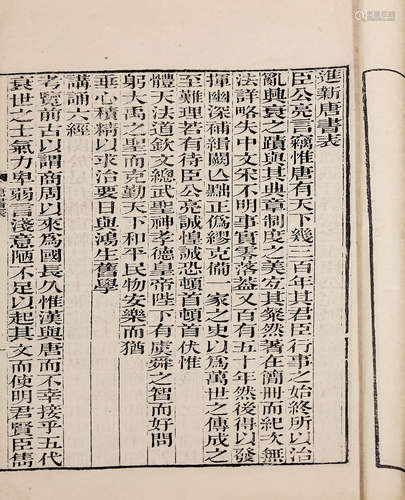 進新唐書表
臣公亮言竊惟唐有天下幾三百年其君臣行事之始終所以治
亂興衰之蹟與其典章制度之美宜其粲然著在簡冊而紀次無
法詳略失中文采不明事實零落蓋又百有五十年然後得以發
揮幽深補緝闕亾黜正偽繆克備一家之史以為萬世之傳成之
至難理若有待臣公亮誠惶誠恐頓首頓首伏惟
體天法道欽文總武聖神孝德皇帝陛下有虞舜之智而好問
躬大禹之聖而克勤天下和平民物安樂而猶
垂心積精以求治要日與鴻生舊學
講誦六經
考覽前古以謂商周以來為國長久惟漢與唐而不幸接乎五代
衰世之士氣力卑弱言淺意陋不足以起其文而使明君賢臣雋